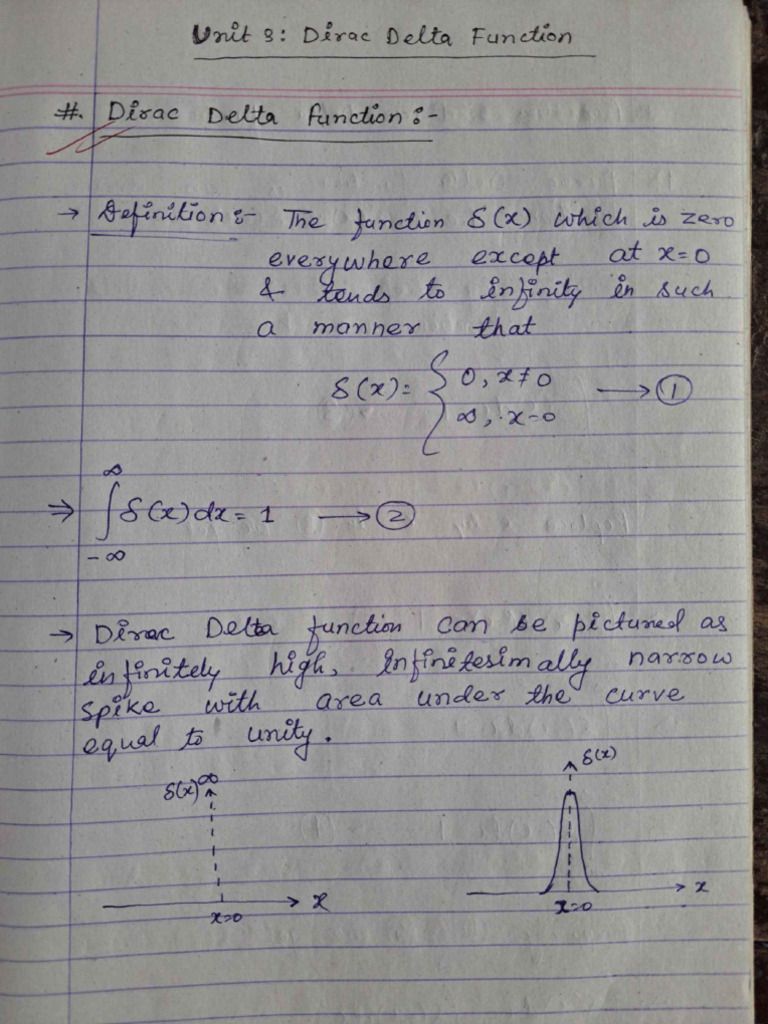 Unit 3: Dirac Delta Function
#. Dirac Delta function:-
→ Definition:- The function δ(x) which is zero
everywhere except at x=0
& tends to infinity in such
a manner that
δ(x)= { 0, x≠0 → ①
∞, x=0
⇒ ∫_{-∞}^{∞} δ(x)dx = 1 → ②
→ Dirac Delta function can be pictured as
infinitely high, infinitesimally narrow
spike with area under the curve
equal to unity.
δ(x) ∞
x=0
x
δ(x)
x=0
x